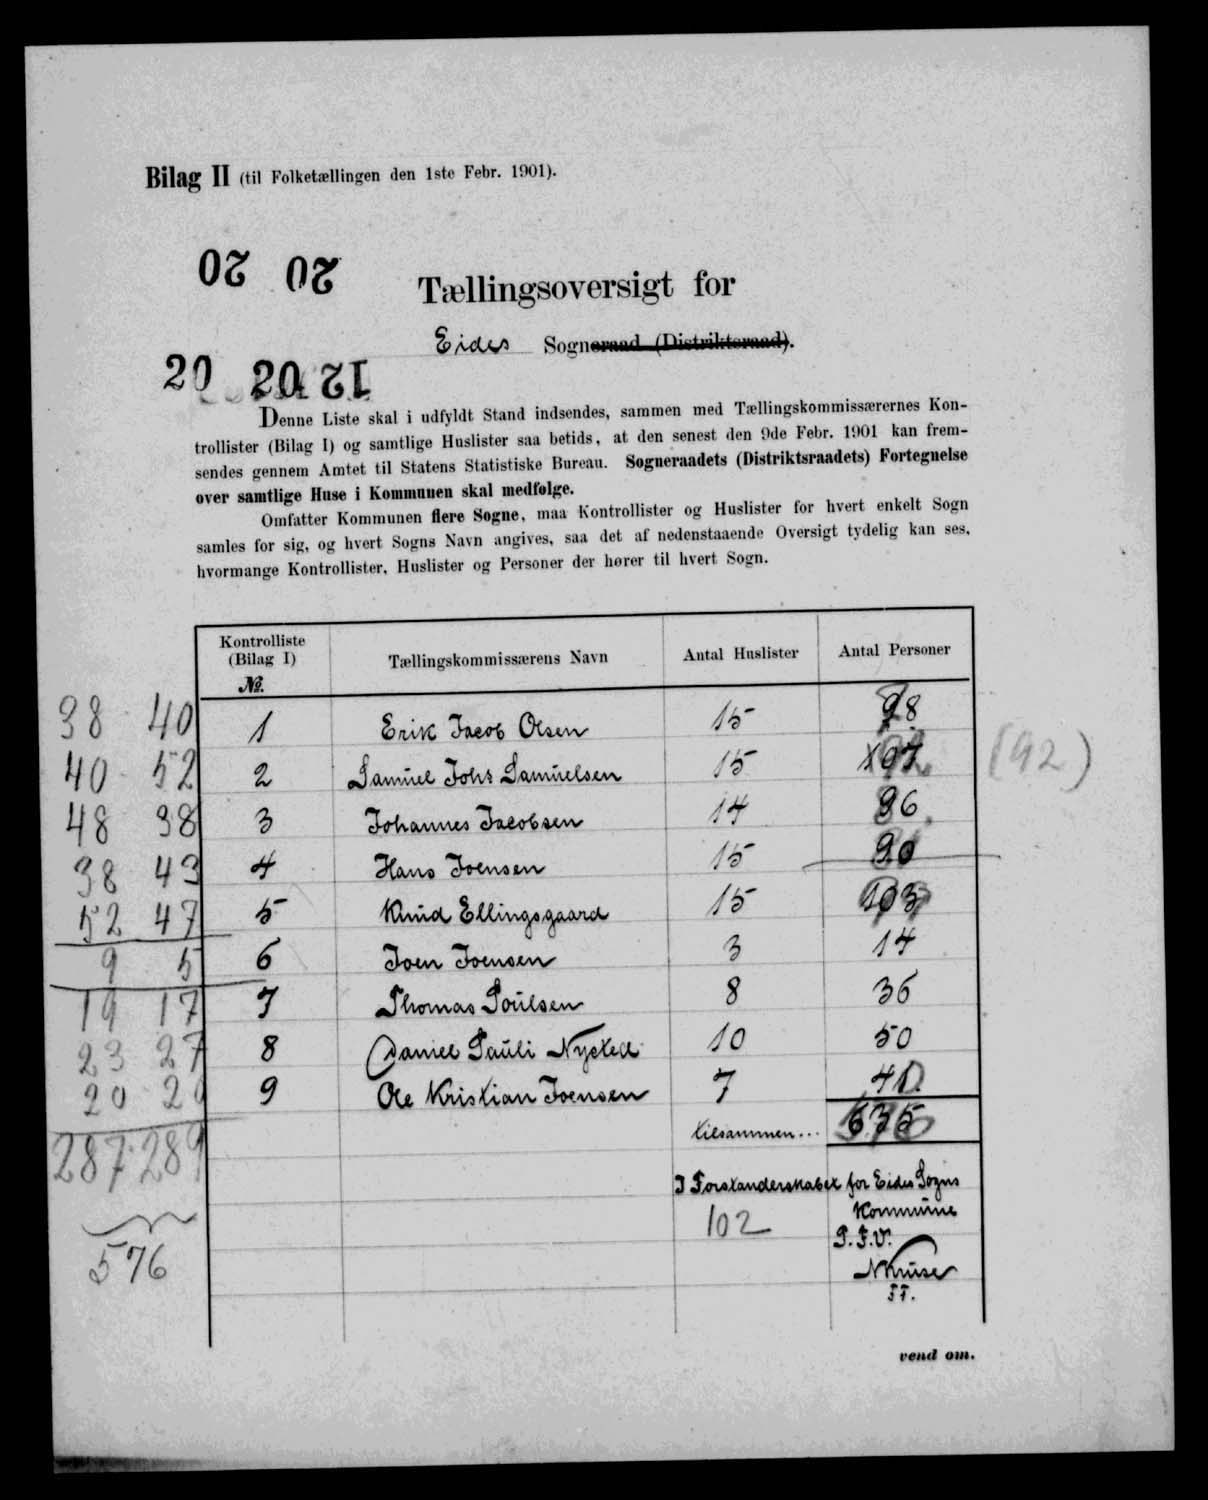 Bilag II (til Folketællingen den 1ste Febr. 1901).
20 20
Tællingsoversigt for
Eides Sogneraad (Distriktsraad).
20 20 21
Denne Liste skal i udfyldt Stand indsendes, sammen med Tællingskommissærernes Kon-
trollister (Bilag I) og samtlige Huslister saa betids, at den senest den 9de Febr. 1901 kan frem-
sendes gennem Amtet til Statens Statistiske Bureau. Sogneraadets (Distriktsraadets) Fortegnelse
over samtlige Huse i Kommunen skal medfølge.
Omfatter Kommunen flere Sogne, maa Kontrollister og Huslister for hvert enkelt Sogn
samles for sig, og hvert Sogns Navn angives, saa det af nedenstaaende Oversigt tydelig kan ses,
hvormange Kontrollister, Huslister og Personer der hører til hvert Sogn.
Kontrolliste (Bilag I) No. Tællingskommissærens Navn Antal Huslister Antal Personer
38 40 1 Erik Jacob Olsen 15 98
40 52 2 Samuel Johs Samuelsen 15 (92)
48 38 3 Johannes Jacobsen 14 86
38 43 4 Hans Joensen 15
52 47 5 Knud Ellingsgaard 15 103
9 5 6 Joen Joensen 3 14
19 17 7 Thomas Poulsen 8 36
23 27 8 Daniel Pauli Nysted 10 50
20 20 9 Ole Kristian Joensen 7
tilsammen... 635
287 289
I Forstanderskabet for Eides Sogns
102 Kommune
P. F. V.
576 NKruse
FF.
vend om.